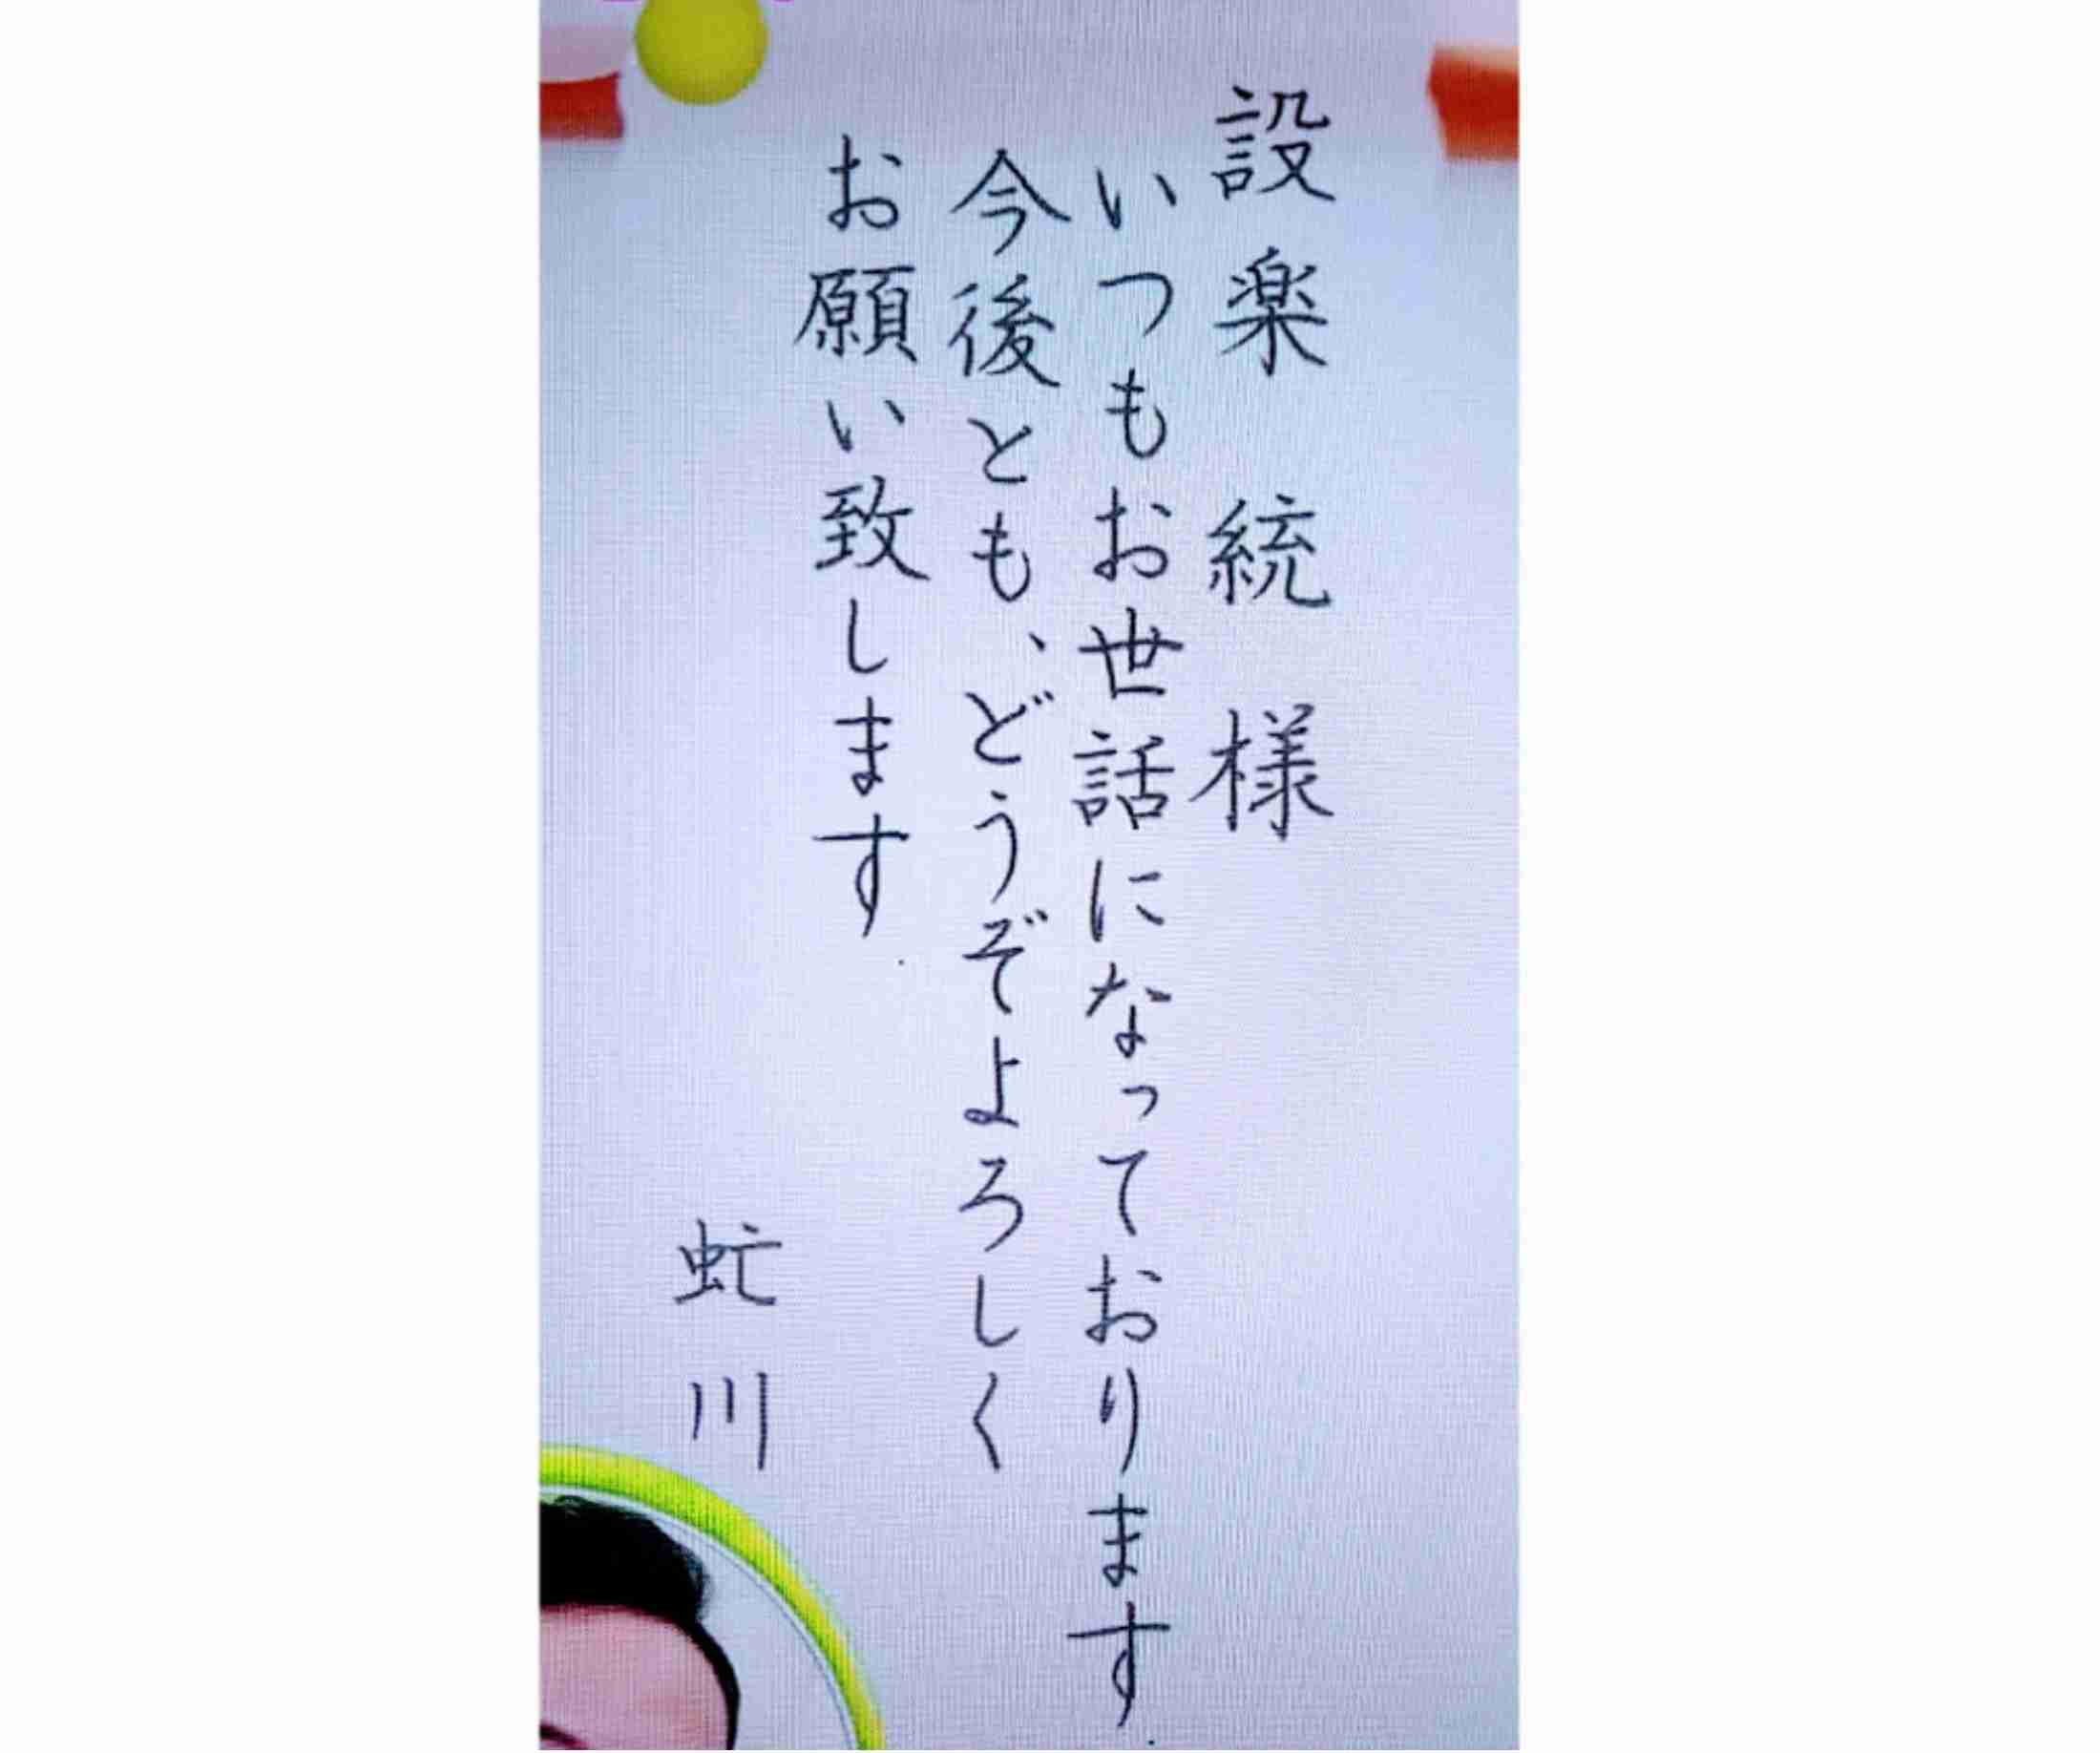 設楽 統 様
いつもお世話になっております
今後とも、どうぞよろしく
お願い致します
虻川